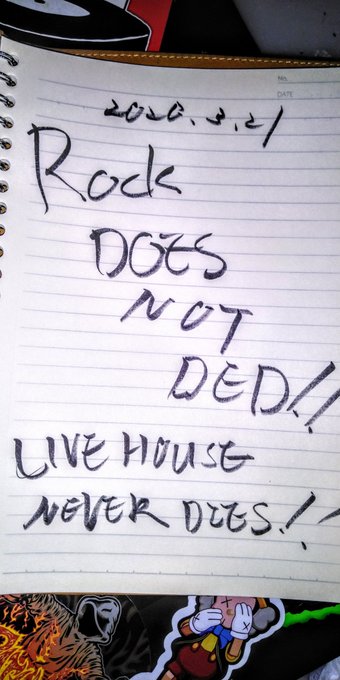 No.
DATE
2020.3.21
Rock
DOES
NOT
DED!!
LIVE HOUSE
NEVER DIES!!